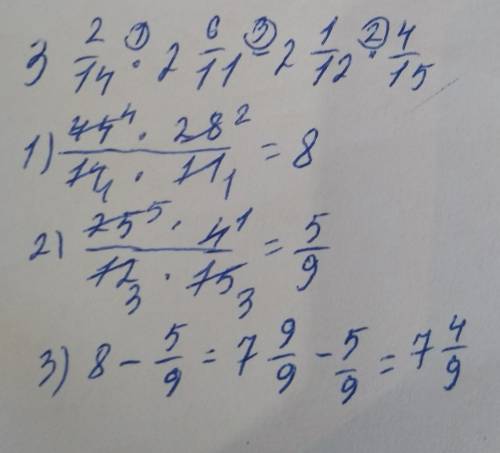 3 2/14 ·① 2 6/11 −③ 2 1/12 ·② 4/15
1) 44⁴ · 28² / 14₁ · 11₁ = 8
2) 25⁵ · 4¹ / 12₃ · 15₃ = 5/9
3) 8 − 5/9 = 7 9/9 − 5/9 = 7 4/9